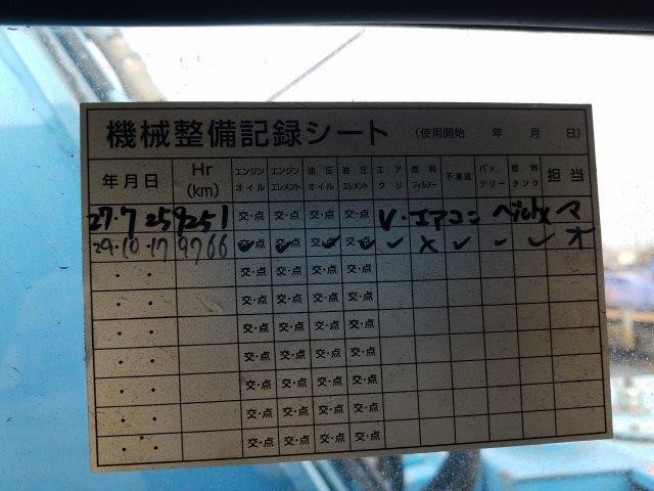 機械整備記録シート (使用開始 年 月 日)
年月日 Hr (km) エンジンオイル エンジンエレメント 油圧オイル 油圧エレメント エアクリ 燃料フィルター 不凍液 バッテリー 燃料タンク 担当
27・7 25 9251 交・点 交・点 交・点 交・点 V・エアコン マ
29・10・17 9766 交・点 ✓ 交・点 ✓ 交・点 ✓ 交・点 ✓ ✓ × ✓ ✓ ✓ オ
・ ・ 交・点 交・点 交・点 交・点
・ ・ 交・点 交・点 交・点 交・点
・ ・ 交・点 交・点 交・点 交・点
・ ・ 交・点 交・点 交・点 交・点
・ ・ 交・点 交・点 交・点 交・点
・ ・ 交・点 交・点 交・点 交・点
・ ・ 交・点 交・点 交・点 交・点